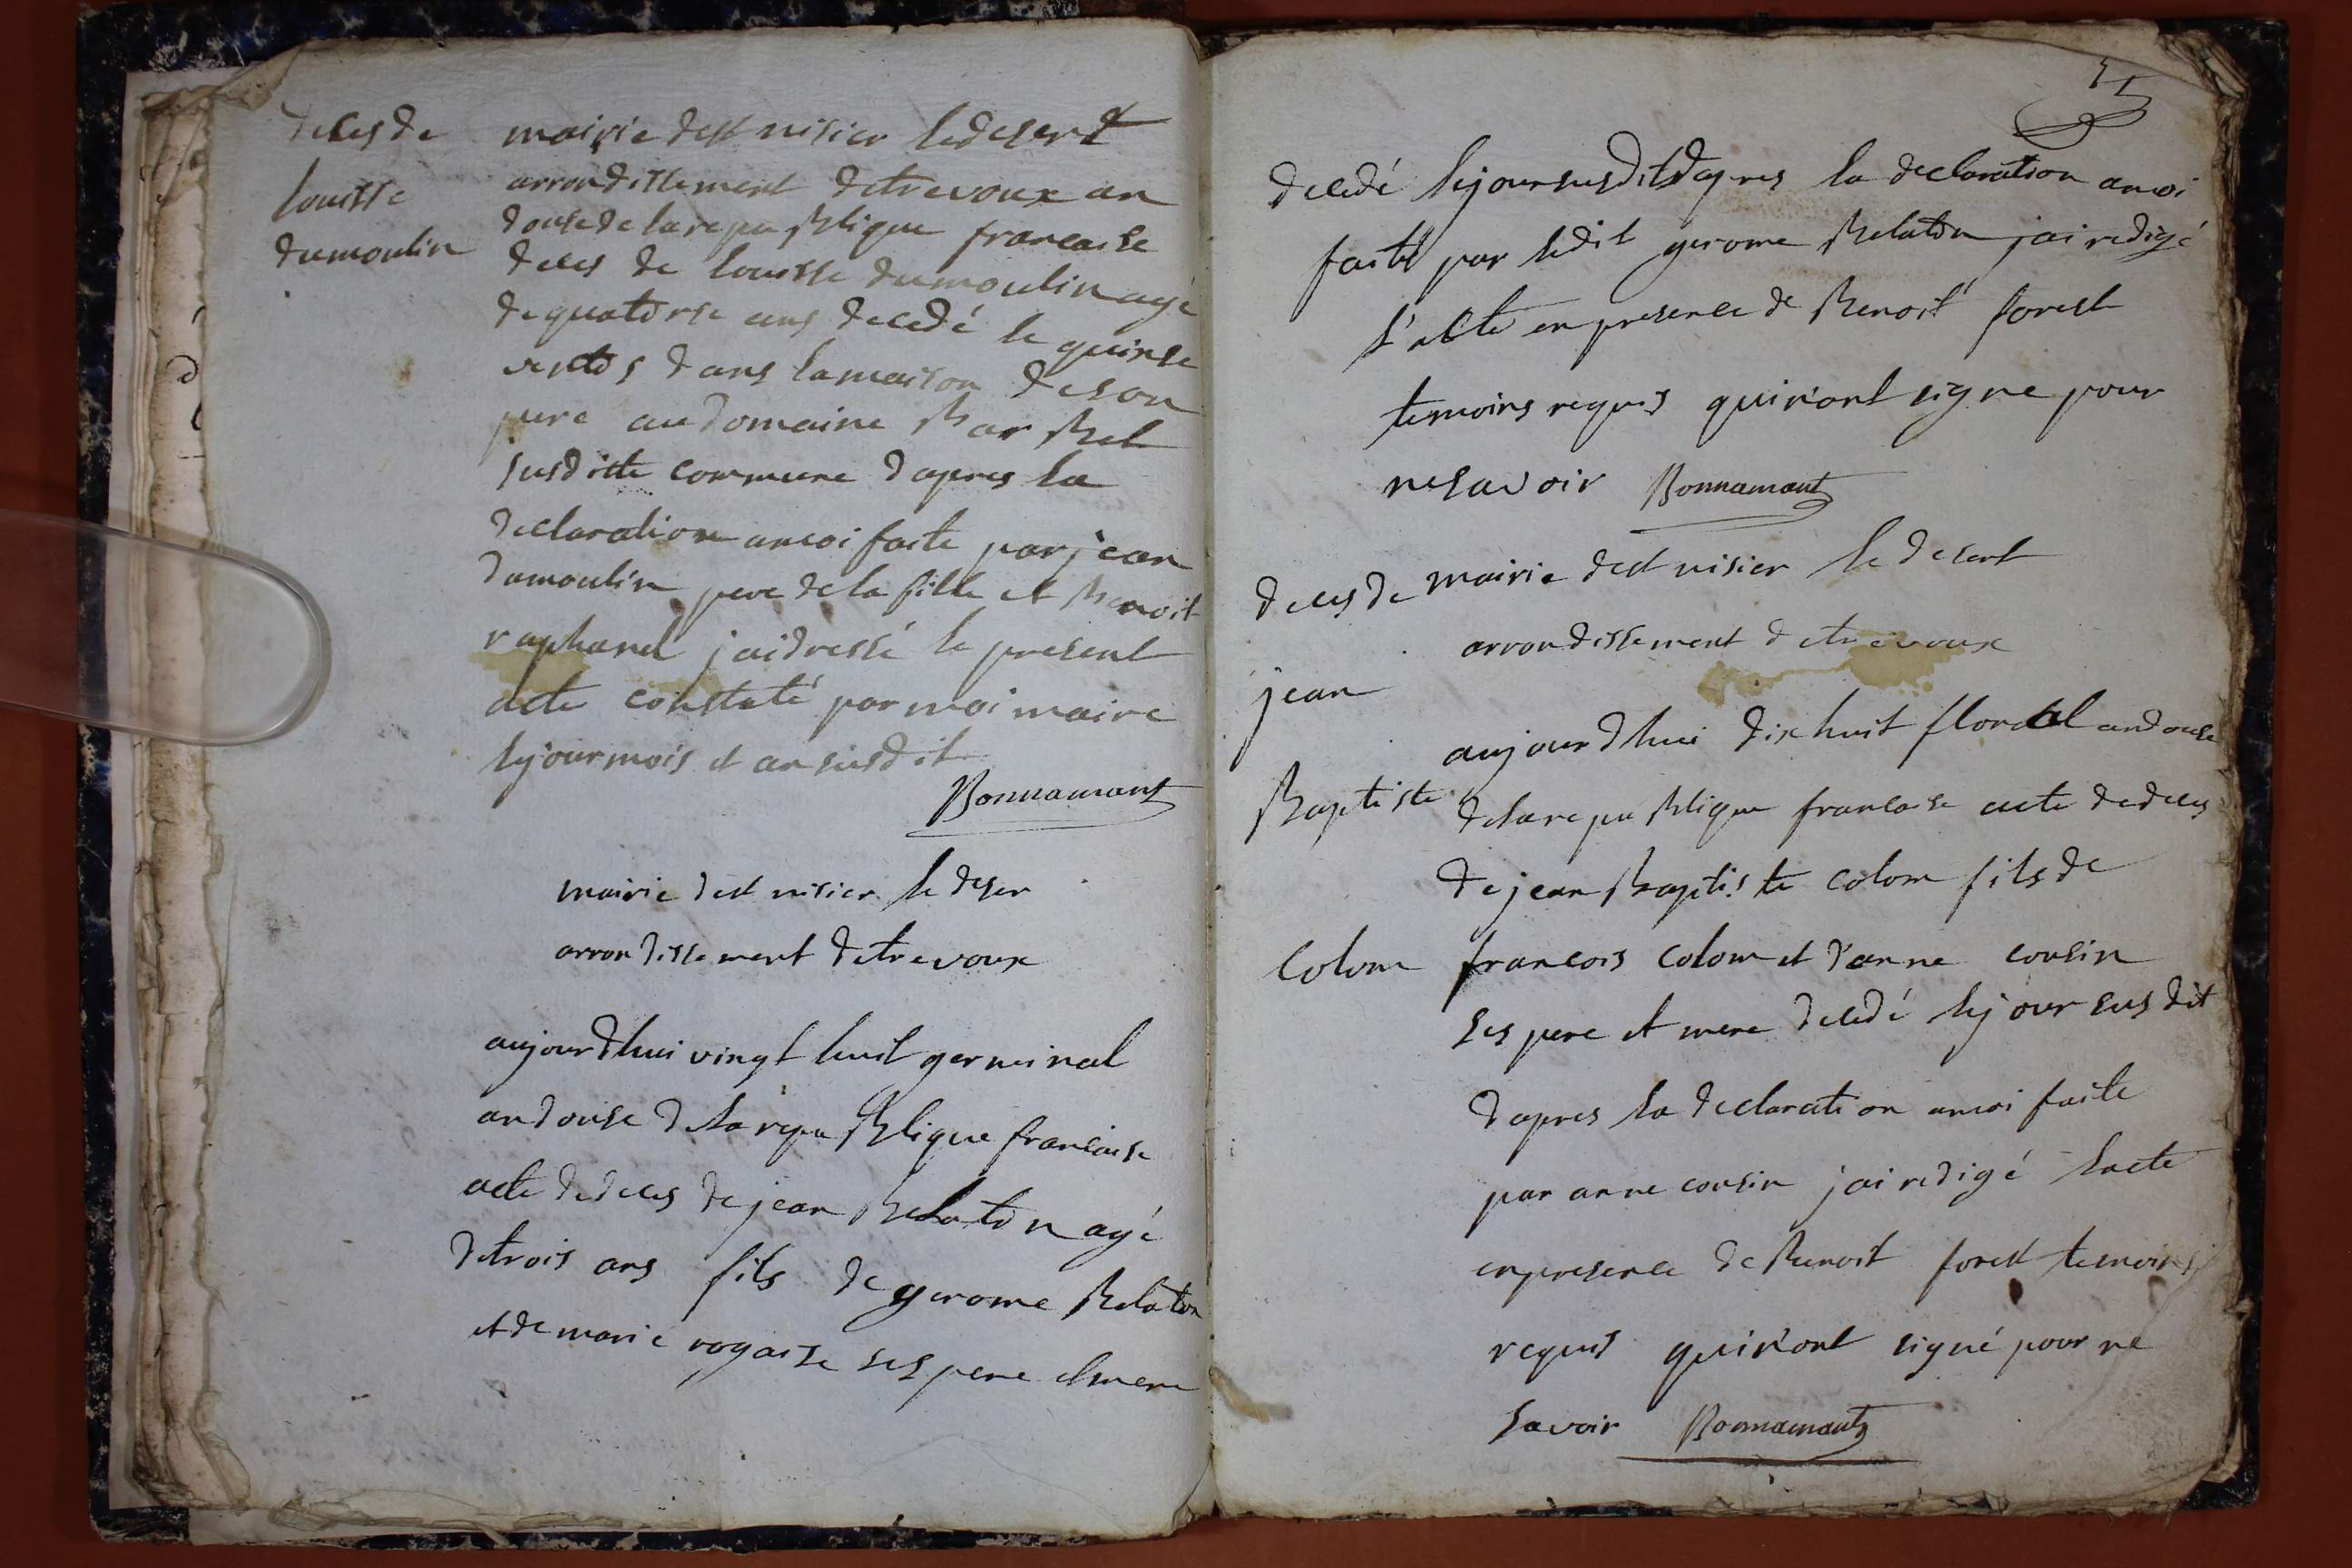 deces de
louisse
dumoulin
mairie de st nisier le desert
arrondissement de trevoux an
douse de la republique francaise
deces de louisse dumoulin agé
de quatorse ans decedé le quinse
ventos dans la maison de son
pere au domaine Barbel
susditte commune d'apres la
declaration a moi faite par jean
dumoulin pere de la fille et Benoit
raphanel j'ai dressé le present
acte constaté par moi maire
le jour mois et an susdit
Bonnamant
mairie de st nisier le deser
arrondissement de trevoux
aujourdhui vingt huit germinal
an douse de la republique francaise
acte de deces de jean Belaton agé
de trois ans fils de gerome Belaton
et de marie rogaise ses pere et mere
decedé le jour susdit d'apres la declaration a moi
faitte par ledit gerome Belaton j'ai redigé
l'acte en presence de Benoit forest
temoins requis qui n'ont signe pour
ne savoir Bonnamant
deces de
jean
Baptiste
Colom
mairie de st nisier le desert
arrondissement de trevoux
aujourdhui dix huit floreal an douse
de la republique francaise acte de deces
de jean Baptiste colom fils de
francois colom et d'anne cousin
ses pere et mere decedé le jour susdit
d'apres la declaration a moi faite
par anne cousin j'ai redigé l'acte
en presence de Benoit forest temoins
requis qui n'ont signé pour ne
savoir Bonnamant